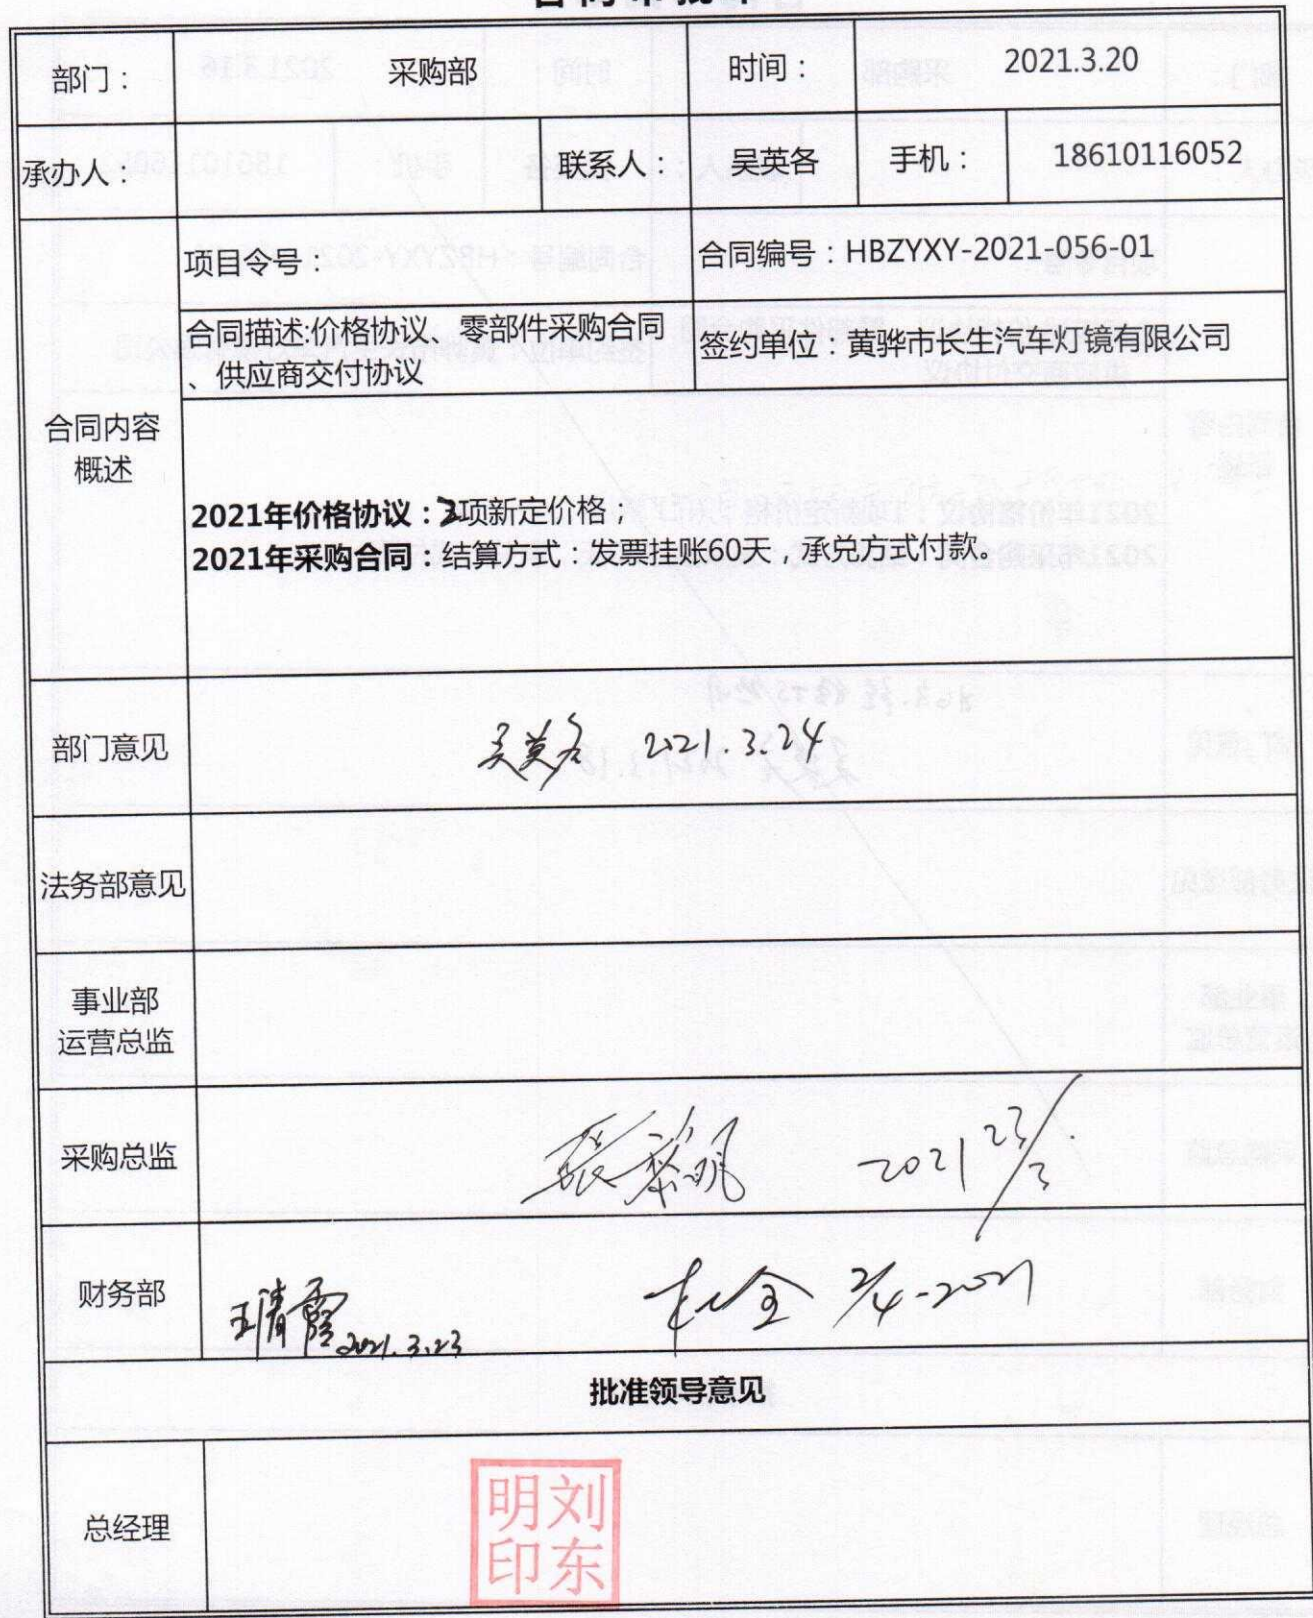 部门： 采购部 时间： 2021.3.20
承办人： 联系人： 吴英各 手机： 18610116052
项目令号： 合同编号：HBZYXY-2021-056-01
合同描述:价格协议、零部件采购合同
、供应商交付协议
签约单位：黄骅市长生汽车灯镜有限公司
合同内容
概述
2021年价格协议：2项新定价格；
2021年采购合同：结算方式：发票挂账60天，承兑方式付款。
部门意见 吴英各 2021.3.24
法务部意见
事业部
运营总监
采购总监 2021 23/3
财务部 王清霞 2021.3.23 2/4-2021
批准领导意见
总经理
刘东明印